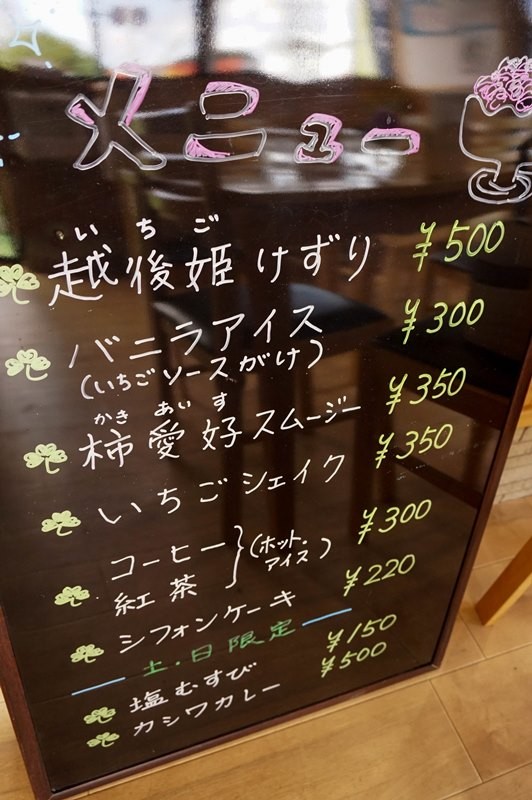 メニュー
いちご
越後姫けずり ¥500
バニラアイス ¥300
(いちごソースがけ)
かき あいす
柿愛好スムージー ¥350
いちごシェイク ¥350
コーヒー
紅茶 } (ホット。アイス) ¥300
シフォンケーキ ¥220
土.日限定
塩むすび ¥150
カシワカレー ¥500